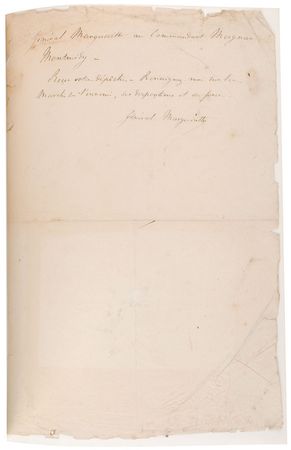 Général Margueritte au Commandant
Montmédy –
Reçu votre dépêche – Renseignez moi sur la
Marche de l'ennemi, ses dispositions et sa force.
Général Margueritte